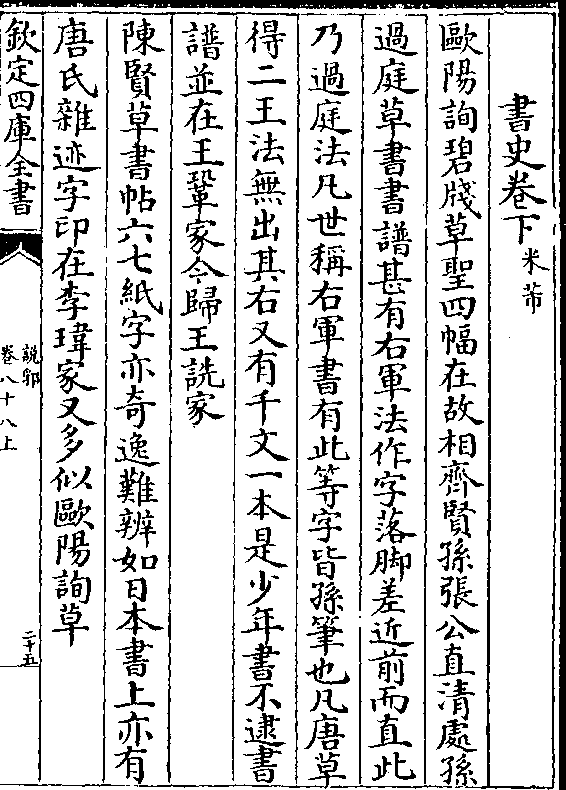 書史卷下米芾
歐陽詢碧牋草聖四幅在故相齊賢孫張公直清處孫
過庭草書書譜甚有右軍法作字落脚差近前而直此
乃過庭法凡世稱右軍書有此等字皆孫筆也凡唐草
得二王法無出其右又有千文一本是少年書不逮書
譜並在王鞏家今歸王詵家
陳賢草書帖六七紙字亦奇逸難辨如日本書上亦有
唐氏雜迹字印在李瑋家又多似歐陽詢草
欽定四庫全書
說郛
卷八十八上
二十五